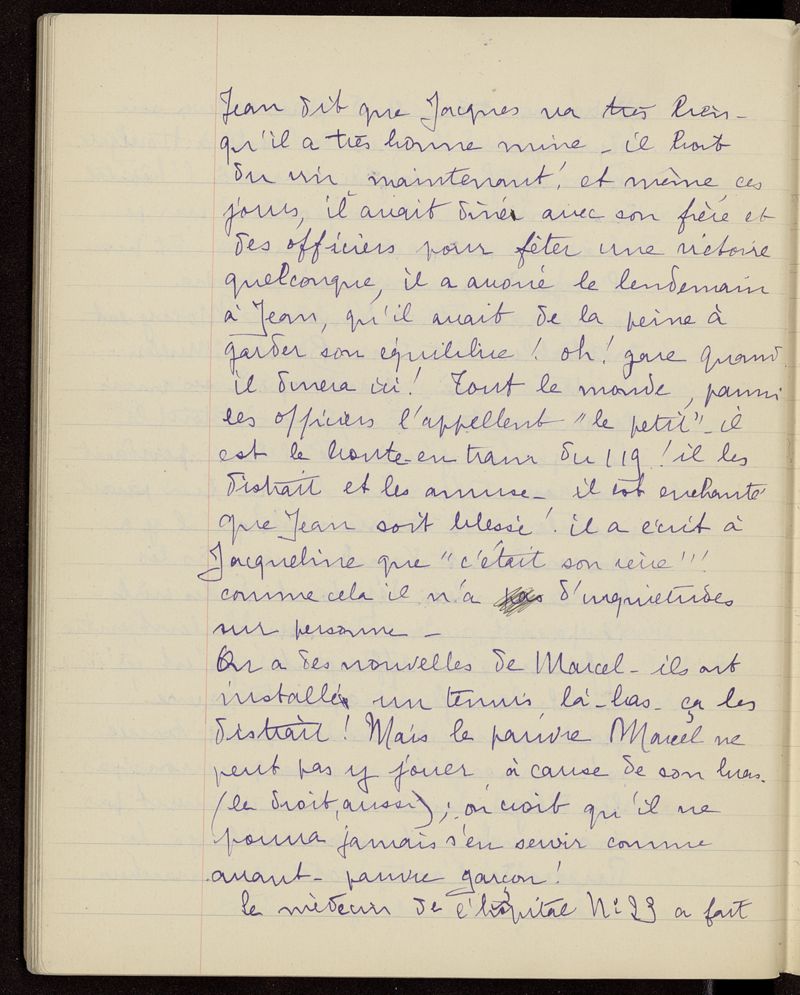 Jean dit que Jacques va très bien -
qu'il a très bonne mine - il boit
du vin maintenant! et même ces
jours, il avait diné avec son frère et
des officiers pour fêter une victoire
quelconque, il a avoué le lendemain
à Jean, qu'il avait de la peine à
garder son équilibre! oh! gare quand
il dinera ici! Tout le monde, parmi
les officiers l'appellent "le petit" - il
est le boute-en train du 119! il les
distrait et les amuse - il est enchanté
que Jean soit blessé! il a écrit à
Jacqueline que "c'était son rêve!!!
comme cela il n'a d'inquiétudes
sur personne -
On a des nouvelles de Marcel - ils ont
installé un tennis là-bas - ça les
distrait! Mais le pauvre Marcel ne
peut pas y jouer à cause de son bras.
(le droit, aussi); on croit qu'il ne
pourra jamais s'en servir comme
avant - pauvre garçon!
le médecin de l'hôpital N° 23 a fait